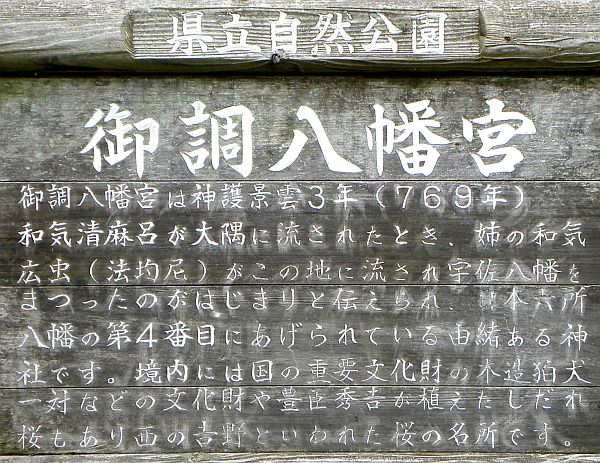 県立自然公園
御調八幡宮
御調八幡宮は神護景雲3年(769年)
和気清麻呂が大隅に流されたとき、姉の和気
広虫(法均尼)がこの地に流され宇佐八幡を
まつったのがはじまりと伝えられ、日本六所
八幡の第4番目にあげられている由緒ある神
社です。境内には国の重要文化財の木造狛犬
一対などの文化財や豊臣秀吉が植えたしだれ
桜もあり西の吉野といわれた桜の名所です。